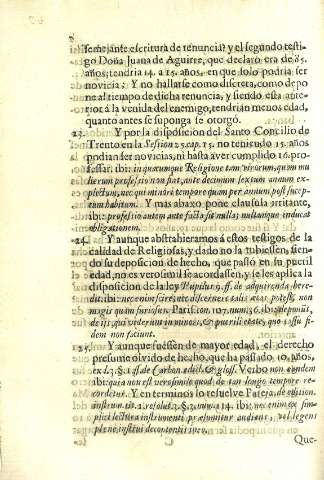 8
semejante escritura de renuncia? y el segundo testi-
go Doña Juana de Aguirre, que declarò era de 85.
años, tendria 14. a 15. años, en que solo podria ser
novicia; Y no hallarse como discreta, como depo-
ne al tiempo de dicha renuncia, y siendo esta ante-
rior à la venida del enemigo, tendrian menos edad,
quanto antes se suponga se otorgò.
23. Y por la disposicion del Santo Concilio de
Trento en la Session 25. cap. 15. no teniendo 15. años
podian ser novicias, ni hasta aver cumplido 16. pro-
fessar: ibi: in quacumque Religione tam virorum, quam mu
lierum professio non fiat, ante decimum sextum annum ex-
pletum, nec qui minori tempore quam per annum post suscep-
tum habitum. Y mas abaxo pone clausula irritante,
ibi: professio autem ante facta sit nulla; nullamque inducat
obligationem.
24. Y aunque abstrahieramos à estos testigos de la
calidad de Religiosas, y dado no la tubiessen, sien-
do su deposicion de hecho, que passò en su pueril
edad, no es verosimil se acordassen, y se les aplica la
disposicion de la ley Pupilus 9. ff. de adquirenda here-
dit. ibi: nec enim scire, nec discernere talis ætas potest, non
magis quam furiosus. Paris. con. 107. num. 36. ibi:
de iis, qui viderunt in minori, & puerili etate, quo casu fi-
dem non faciunt.
25. Y aunque fuessen de mayor edad, el derecho
presume olvido de hecho, que ha passado 10. años,
ibi: quia non est verosimile quod de tan longo tempore re-
cordetur. Y en terminos lo resuelve Pareja de edition.
instrum. tit. 2. resolut. 3. §. 2. num. 14. ibi:
plene instrui
Que-